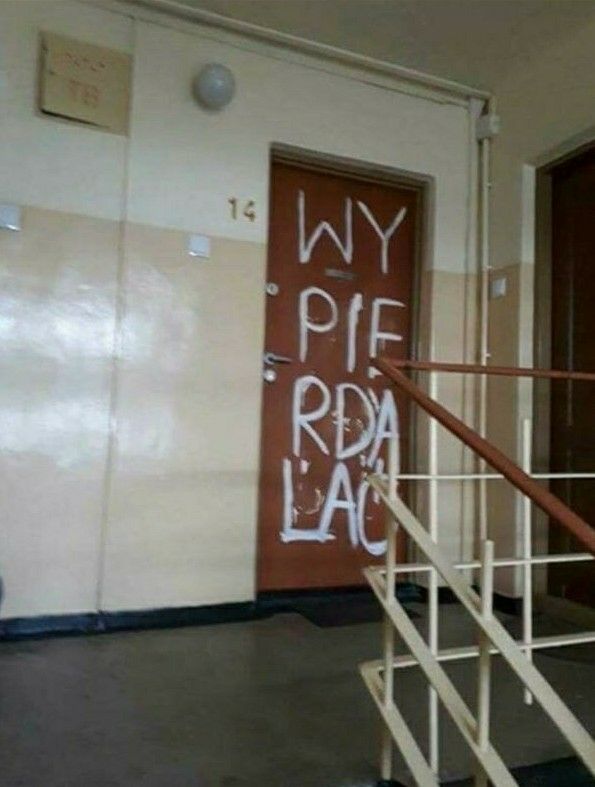 14
WY
PIE
RDA
LAĆ